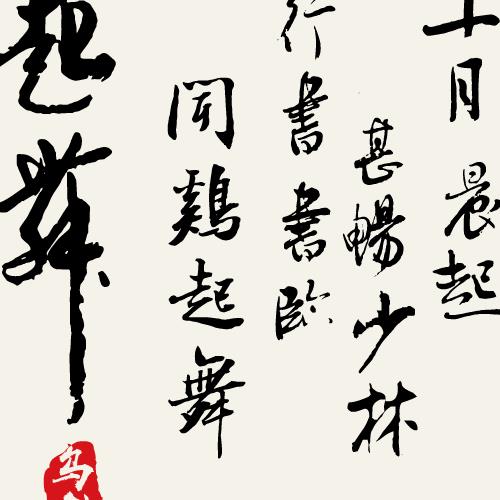 十月晨起
甚暢少林
行書書臨
聞鷄起舞
起舞